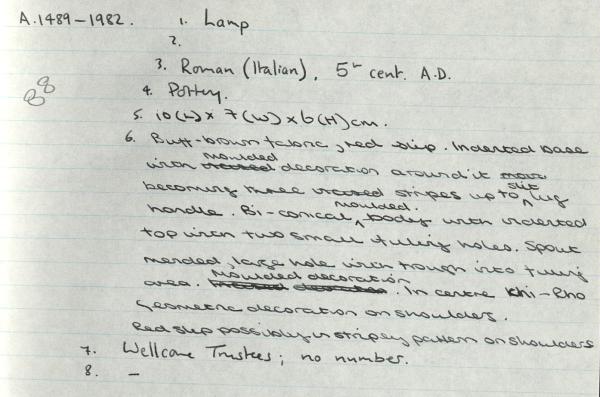 A.1489-1982. 1. Lamp
2.
3. Roman (Italian), 5th cent. A.D.
88
4. Pottery.
5. 10(L) x 7(W) x 6(H)cm.
6. Buff-brown fabric, red slip. Indented base
with moulded decoration around it
becoming three stripes up to slit lug
handle. Bi-conical moulded body with indented
top with two small filling holes. Spout
mended, large hole with trough into filling
area. Moulded decoration. In centre Khi-Rho
Geometric decoration on shoulders.
Red slip possibly in stripey pattern on shoulders
7. Wellcome Trustees; no number.
8. —